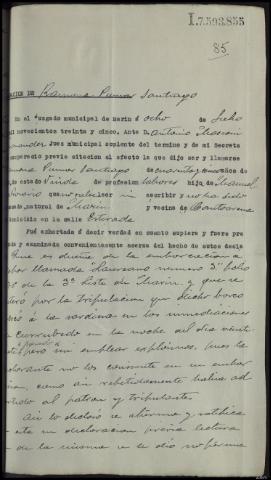 I.7.593.855
85
ACION DE Ramona Pumar Santiago
En el Juzgado municipal de Marín á ocho de Julio
mil novecientos treinta y cinco. Ante D. Antonio
Juez municipal suplente del termino y de mi Secreta
compareció previa citacion al efecto la que dijo ser y llamarse
Ramona Pumar Santiago de cuarenta y años de
de estado viuda de profesion labores hija de Manuel
que leer ni escribir y no ha sido
natural de Marín y vecina de Cantoarena
domicilio en la calle Estrada
Fué exhortada á decir verdad en cuanto supiere y fuere pre
y examinada convenientemente acerca del hecho de autos decla
Que es dueña de la embarcacion a
llamada "Laureano número 3" folio
de la 3ª lista de Marín y que se
por la tripulacion que dicho barco
á la sardina en las inmediaciones
en la noche del dia veinte
pero sin emplear explosivos, pues la
declarante no los consiente en su embar
cacion, como asi repetidamente habia ad
vertido al patron y tripulantes.
Asi lo declaró se afirma y ratifica
en esta su declaracion previa lectura
de la misma y no firma